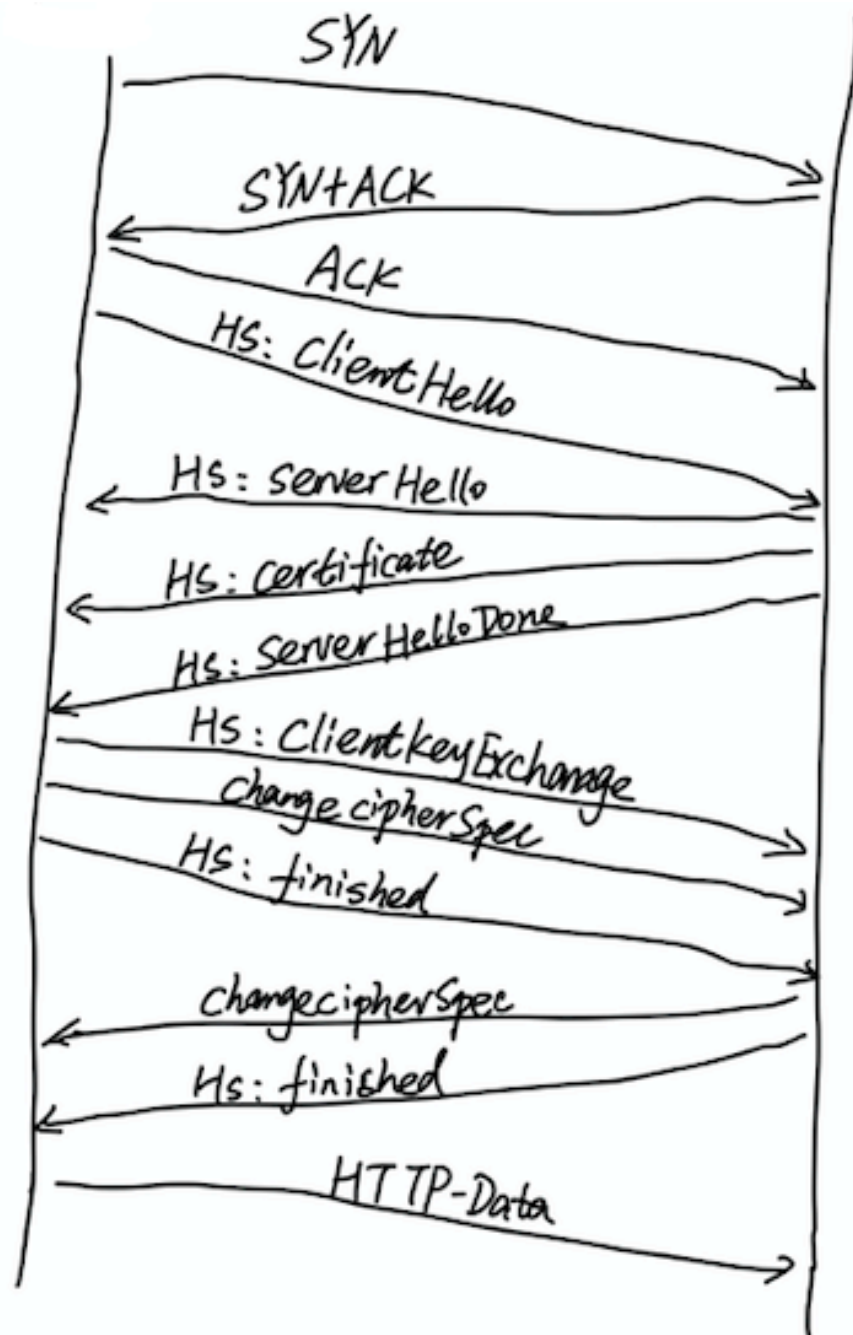 SYN
SYN+ACK
ACK
HS: ClientHello
HS: serverHello
HS: certificate
HS: ServerHelloDone
HS: ClientkeyExchange
change cipherSpec
HS: finished
changecipherSpec
Hs: finished
HTTP-Data